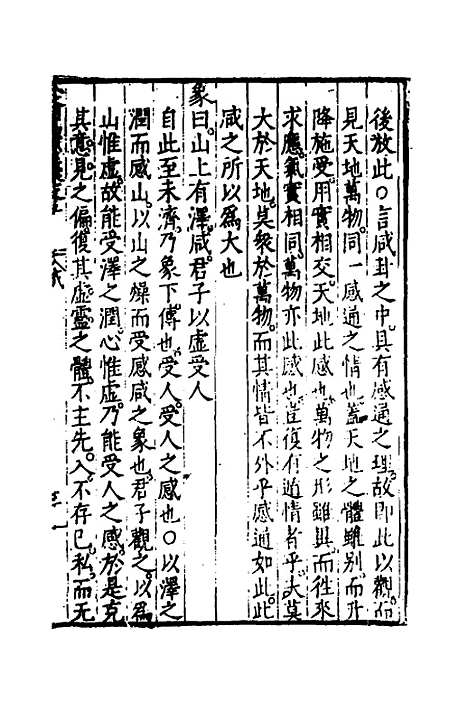 後放此○言咸卦之中具有感通之理故即此以觀而
見天地萬物同一感通之情也蓋天地之體雖别而升
降施受用實相交天地此感也萬物之形雖異而徃來
求應氣實相同萬物亦此感也豈復有遁情者乎夫莫
大於天地莫衆於萬物而其情皆不外乎感通如此此
咸之所以爲大也
象曰山上有澤咸君子以虛受人
自此至未濟乃象下傳也受人受人之感也○以澤之
潤而感山以山之燥而受感咸之象也君子觀之以爲
山惟虛故能受澤之潤心惟虛乃能受人之感於是克
其意見之偏復其虛靈之體不主先入不存已私而無